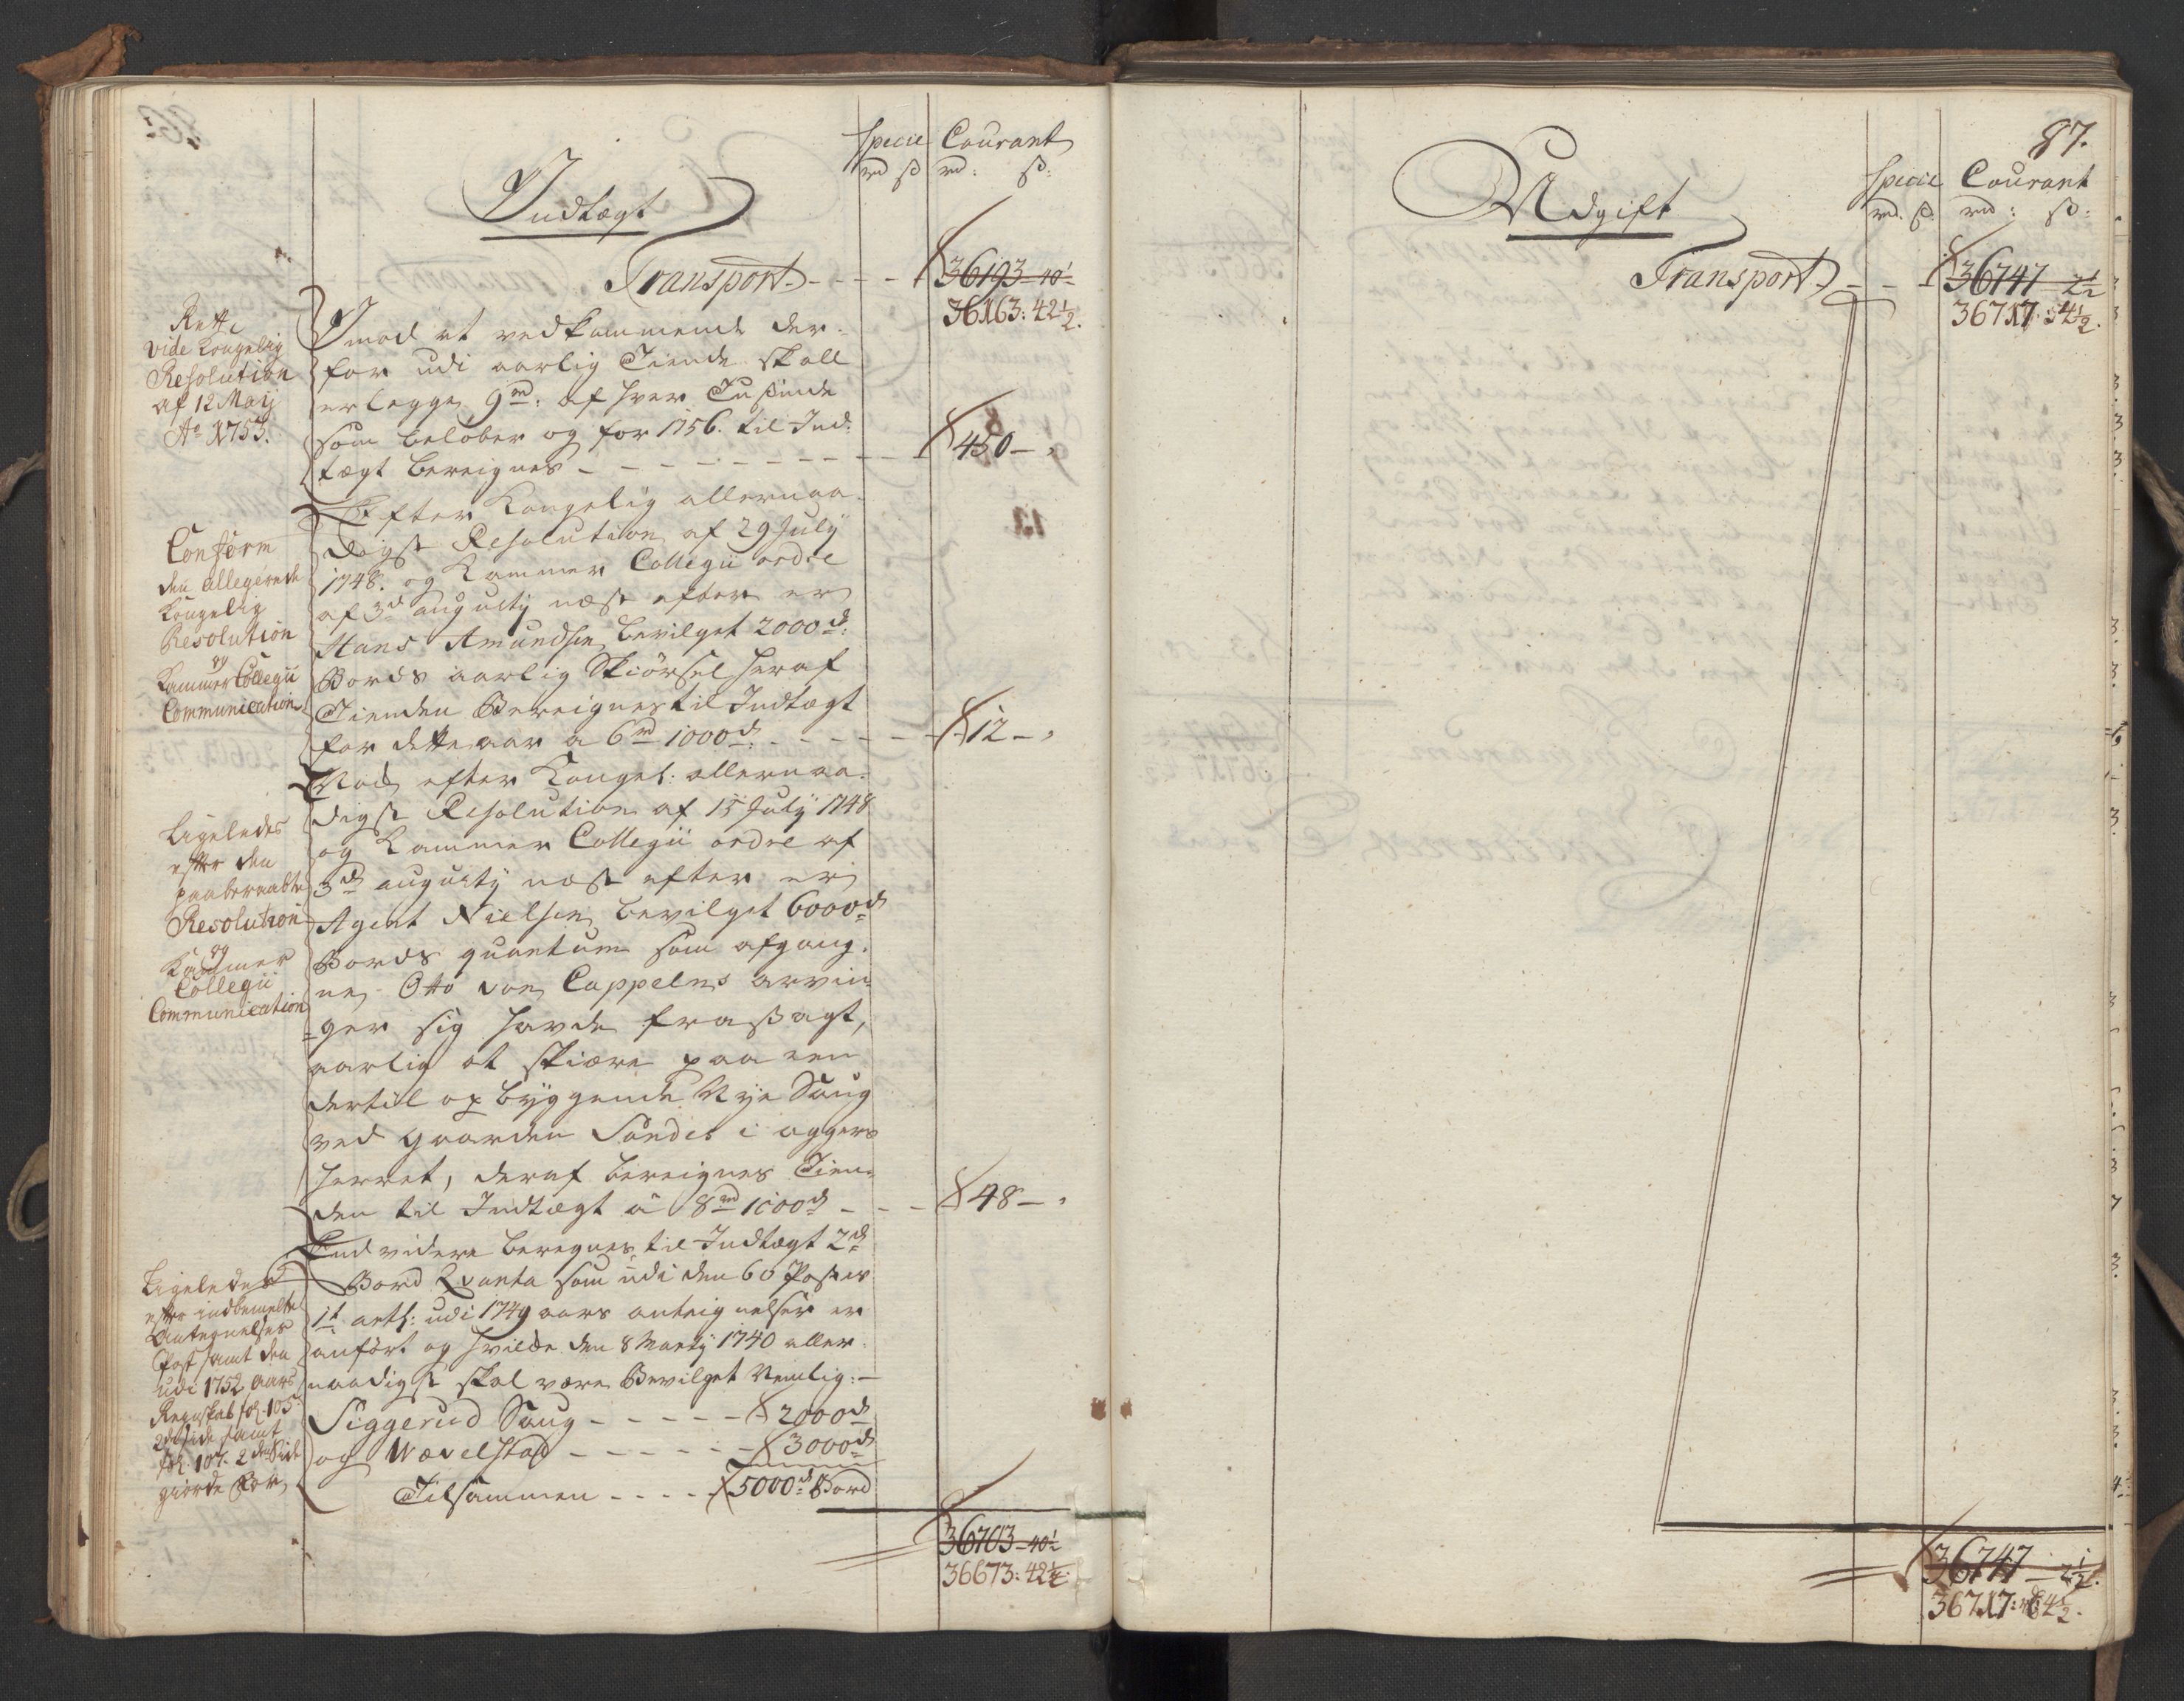 Specie Courant
rd ß rd: ß:
Indtægt
Transport - - - 36193 - 40½
36163: 42½.
Rette
vide Kongelig
Resolution
af 12 Maij
Ao 1753.
Imod at vedkommende der-
for udi aarlig Tiende skall
erlegge 9rd: af hver Tusinde
som beløber og for 1756. til Ind-
tægt bereignes - - - - - - - - 450 - "
Conform
den allegerede
Kongelig
Resolution
og
Kammer Collegii
Communication
Efter Kongelig allernaa-
digst Resolution af 29 July
1748. og Kammer Collegii ordre
af 3d augusty næst efter er
Hans Amundsen bevilget 2000d:
Bords aarlig Skiørsel heraf
Tienden Bereignes til Indtægt
for dette aar a 6rd 1000d: - - - - - 12 - "
Ligeledes
efter den
paaberaabte
Resolution
og
Kammer
Collegii
Communication
Nock efter Kongel: allernaa-
digst Resolution af 15 July 1748
og Kammer Collegii ordre af
3d augusty næst efter er
Agent Nielsen bevilget 6000d
Bords quantum som afgang-
ne Otto von Cappelns arvin-
ger sig havde frasagt,
aarlig at skiære paa een
dertil op byggende Nye Saug
ved gaarden Sandes i aggers
herret, deraf bereignes Tien-
den til Indtægt á 8rd 1000d - - - 48 - "
Ligeledes
efter indbemelte
Antegnelses
Post samt den
udi 1752 aars
Regnskab fol. 105
2de side samt
fol. 107. 2den Side
giorde Forr
End videre beregnes til Indtægt 2d
Bord Qvanta som udi den 60 Postes
1t art: udi 1749 aars anteignelser er
anført og hvilde den 8 Marty 1740 aller-
naadigst skal være Bevilget Nemlig: -
Siggerud Saug - - - - - 2000d
og Wævelstad - - - - - - 3000d
Tilsammen - - - - 5000d Bord
36703 - 40½
36673: 42½
87.
Specie Courant
rd. ß. rd: ß:
Udgift
Transport - - - 36747 - 2½
36717: 4½.
36747 - 2½.
36717: 4½.